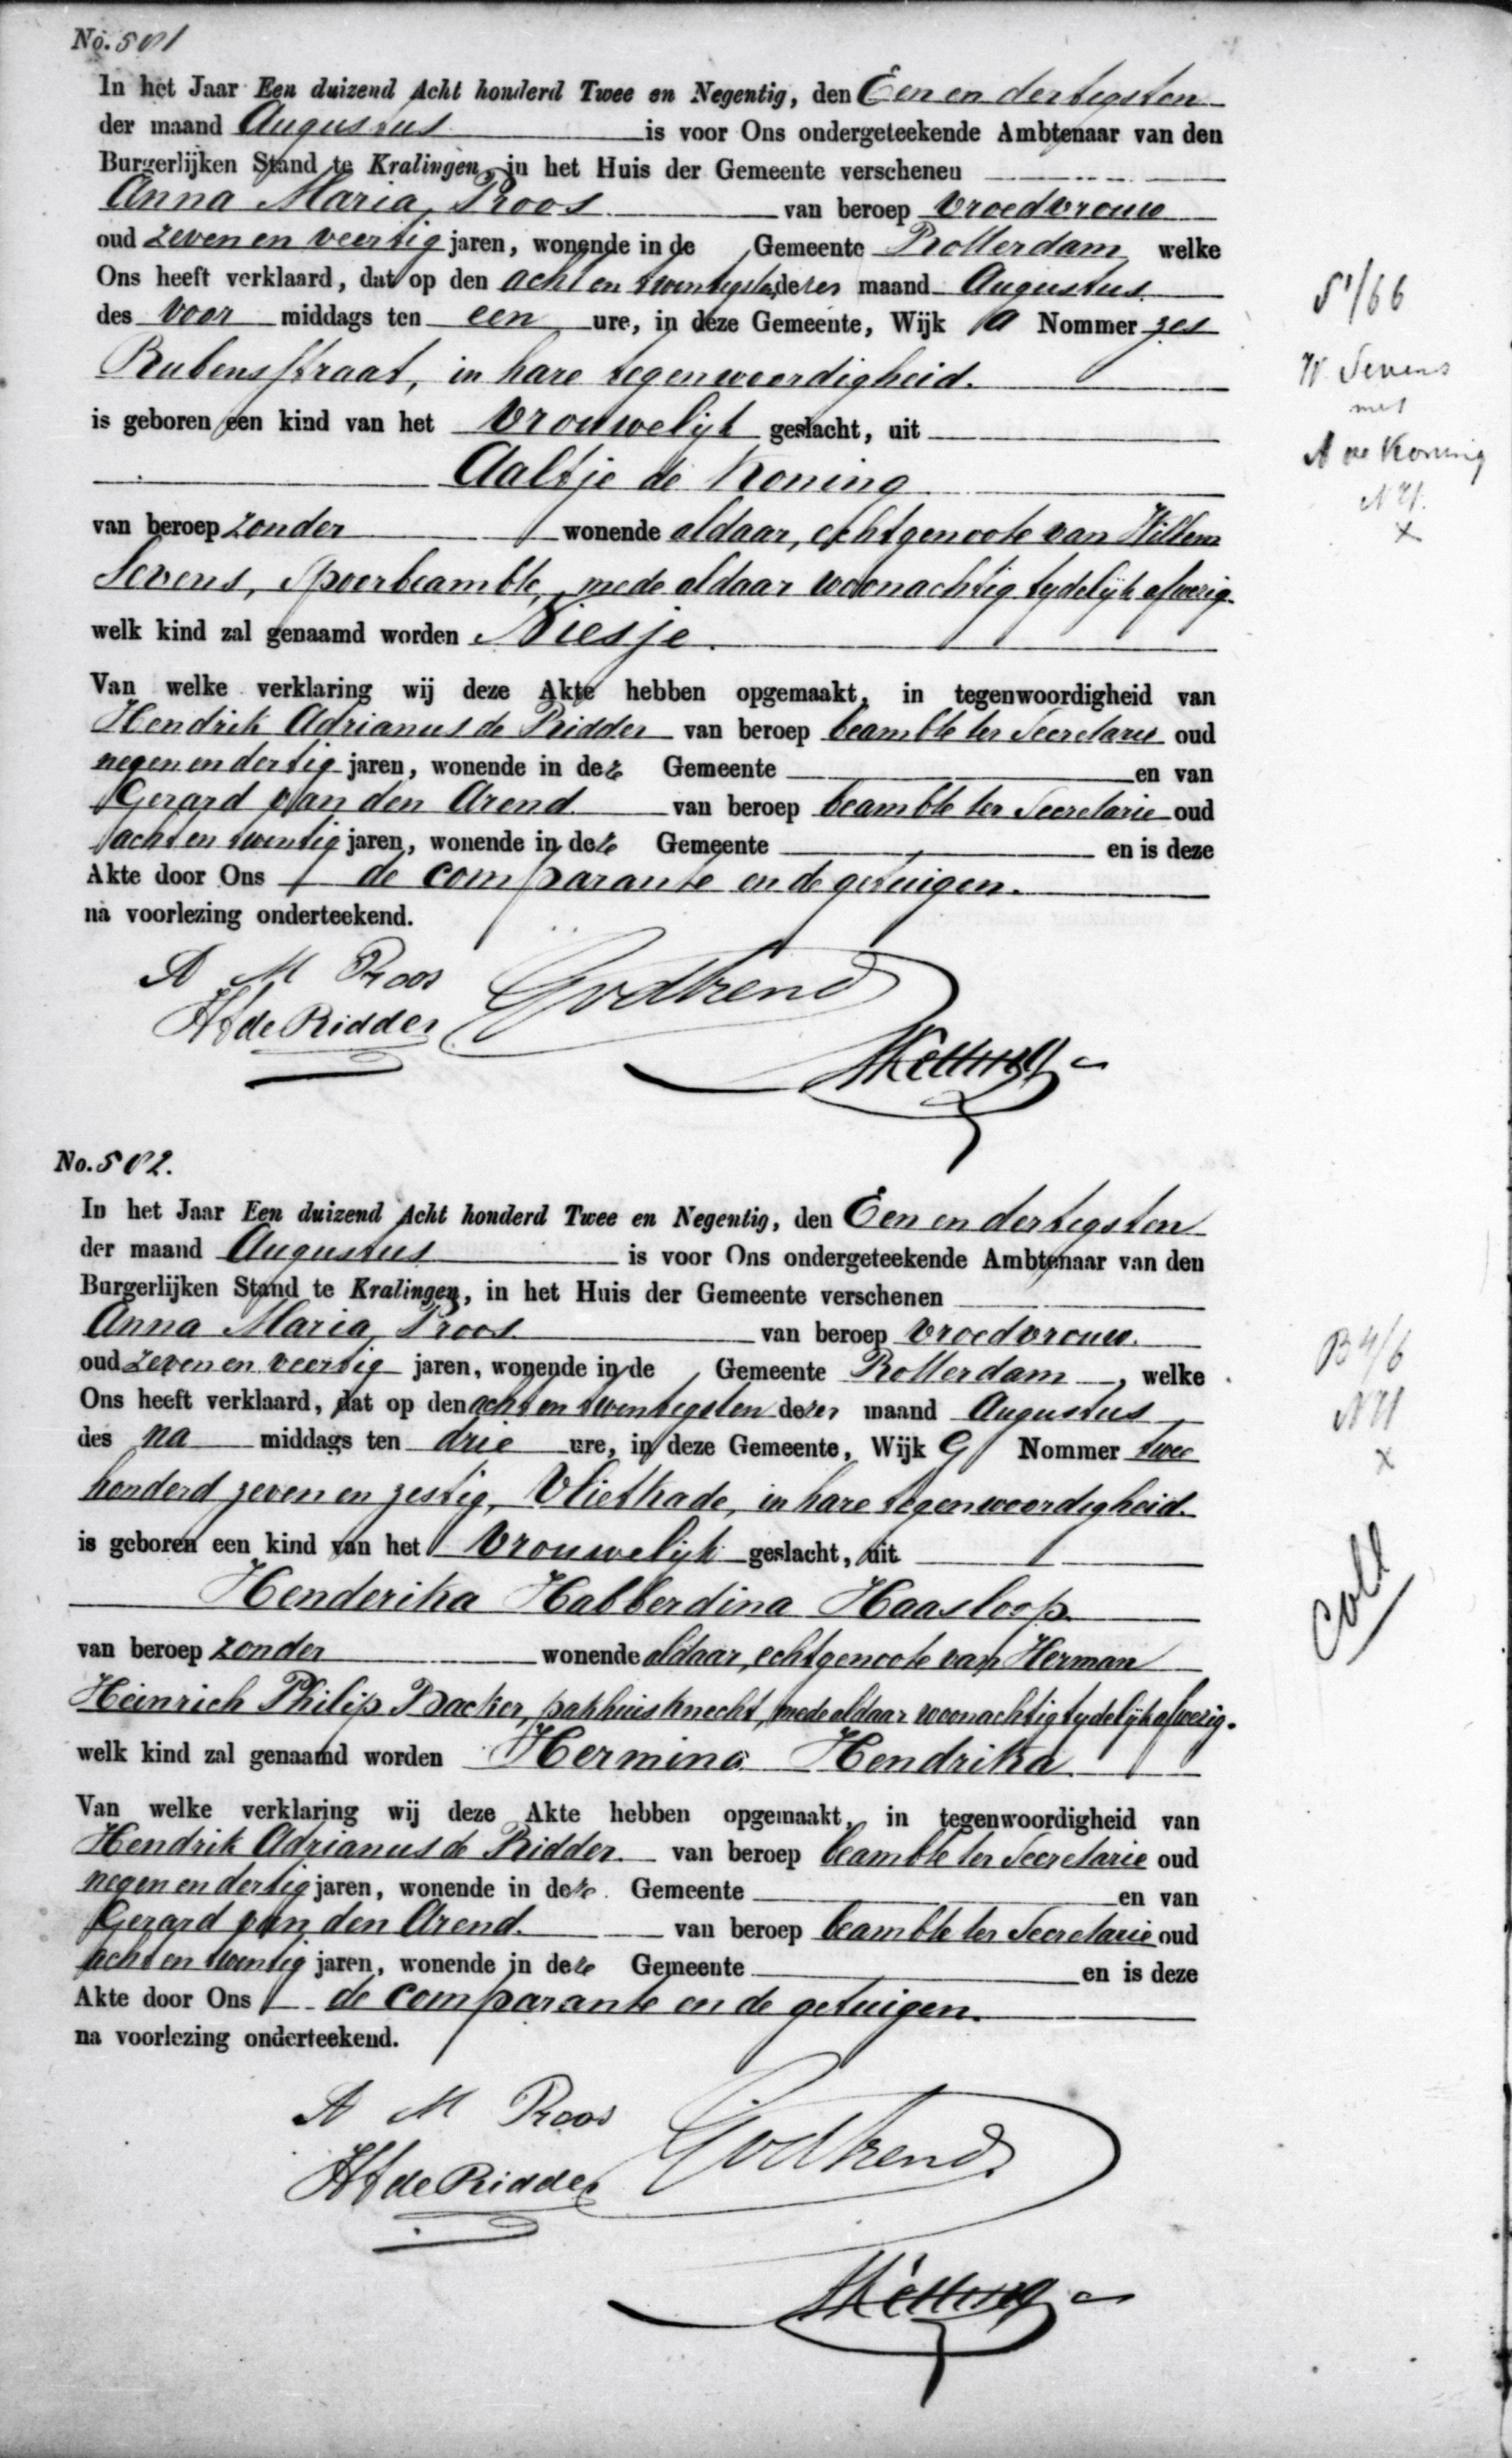 No. 501
In het Jaar Een duizend Acht honderd Twee en Negentig, den Een en dertigsten
der maand Augustus is voor Ons ondergeteekende Ambtenaar van den
Burgerlijken Stand te Kralingen, in het Huis der Gemeente verschenen
Anna Maria Roos van beroep vroedvrouw
oud zeven en veertig jaren, wonende in de Gemeente Rotterdam welke
Ons heeft verklaard, dat op den acht en twintigsten dezer maand Augustus
des voor middags ten een ure, in deze Gemeente, Wijk A Nommer zes
Rubensstraat, in hare tegenwoordigheid.
is geboren een kind van het vrouwelijk geslacht, uit
Aaltje de Koning
van beroep zonder wonende aldaar, echtgenoote van Willem
Sevens, spoorbeambte, mede aldaar woonachtig tydelijk afwezig.
welk kind zal genaamd worden Niesje.
Van welke verklaring wij deze Akte hebben opgemaakt, in tegenwoordigheid van
Hendrik Adrianus de Ridder van beroep beambte ter Secretarie oud
negen en dertig jaren, wonende in deze Gemeente en van
Gerard van den Arend van beroep beambte ter Secretarie oud
acht en twintig jaren, wonende in deze Gemeente en is deze
Akte door Ons de comparante en de getuigen.
na voorlezing onderteekend.
A M Roos GvdArend
HAdeRidder
S1/66
W. Sevens
met
A de Koning
NH.
x
No. 502.
In het Jaar Een duizend Acht honderd Twee en Negentig, den Een en dertigsten
der maand Augustus is voor Ons ondergeteekende Ambtenaar van den
Burgerlijken Stand te Kralingen, in het Huis der Gemeente verschenen
Anna Maria Roos van beroep vroedvrouw.
oud zeven en veertig jaren, wonende in de Gemeente Rotterdam, welke
Ons heeft verklaard, dat op den acht en twintigsten dezer maand Augustus
des na middags ten drie ure, in deze Gemeente, Wijk G Nommer twee
honderd zeven en zestig, Vlietkade, in hare tegenwoordigheid.
is geboren een kind van het vrouwelijk geslacht, uit
Henderika Habberdina Haasloop.
van beroep zonder wonende aldaar, echtgenoote van Herman
Heinrich Philip Backer, pakhuisknecht, mede aldaar woonachtig tydelijk afwezig.
welk kind zal genaamd worden Hermina Hendrika.
Van welke verklaring wij deze Akte hebben opgemaakt, in tegenwoordigheid van
Hendrik Adrianus de Ridder van beroep beambte ter Secretarie oud
negen en dertig jaren, wonende in deze Gemeente en van
Gerard van den Arend. van beroep beambte ter Secretarie oud
acht en twintig jaren, wonende in deze Gemeente en is deze
Akte door Ons de comparante en de getuigen.
na voorlezing onderteekend.
A M Roos GvdArend
HAdeRidder
B4/6
NH
x
Coll